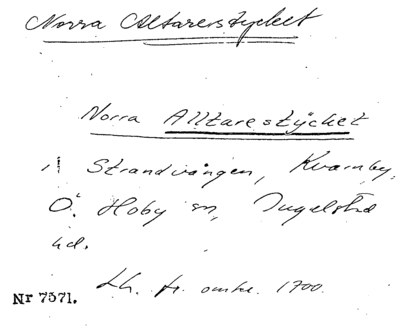 Norra Altarestycket
Norra Alltarestycket
Strandvången, Kvarnby,
Ö. Hoby sn, Ingelstad
hd.
Lh. fr. omkr. 1700.
Nr 7571.